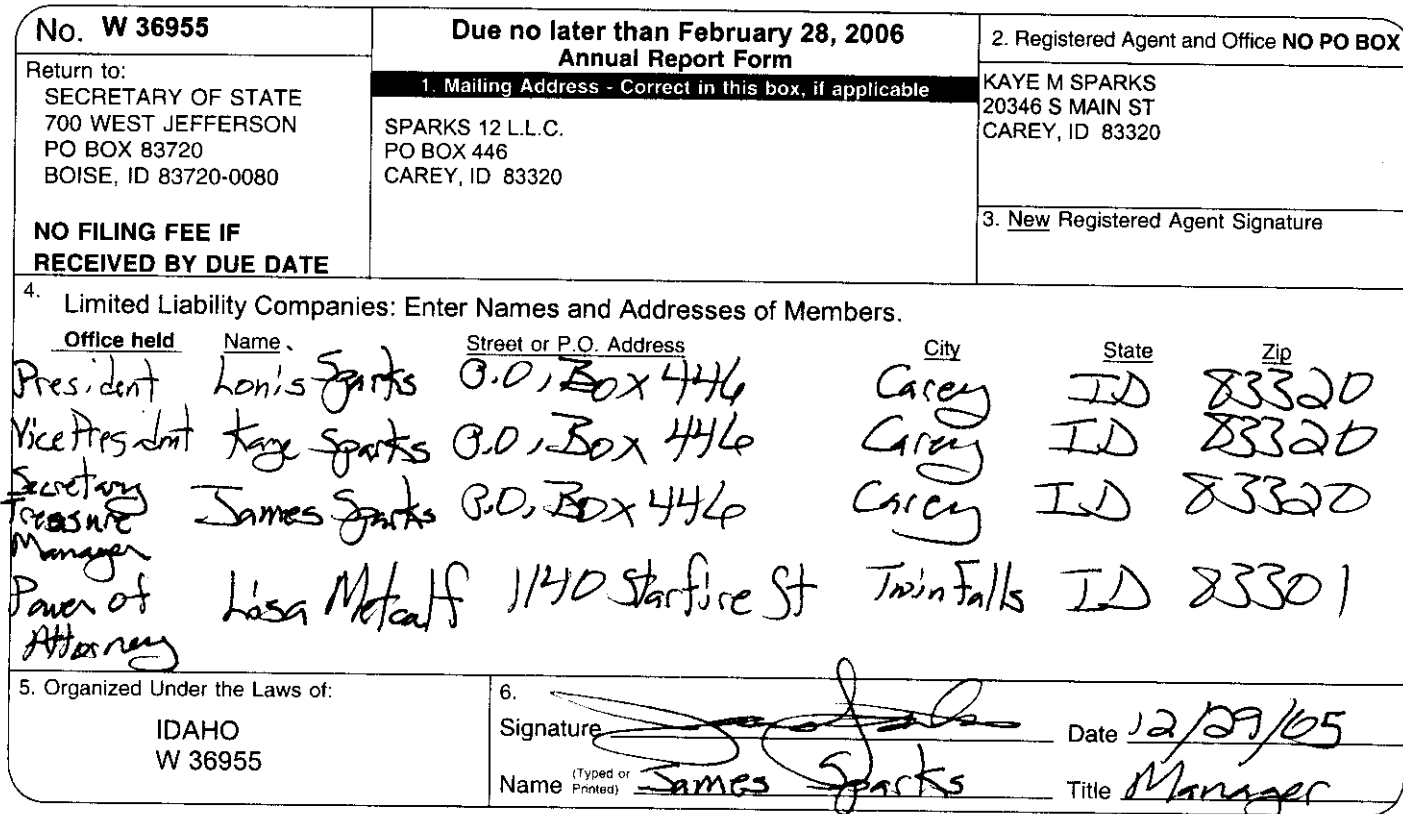 No. W 36955
Return to:
SECRETARY OF STATE
700 WEST JEFFERSON
PO BOX 83720
BOISE, ID 83720-0080
NO FILING FEE IF
RECEIVED BY DUE DATE
Due no later than February 28, 2006
Annual Report Form
1. Mailing Address - Correct in this box, if applicable
SPARKS 12 L.L.C.
PO BOX 446
CAREY, ID 83320
2. Registered Agent and Office NO PO BOX
KAYE M SPARKS
20346 S MAIN ST
CAREY, ID 83320
3. New Registered Agent Signature
4. Limited Liability Companies: Enter Names and Addresses of Members.
Office held Name Street or P.O. Address City State Zip
President Lonis Sparks P.O. Box 446 Carey ID 83320
Vice President Kaye Sparks P.O. Box 446 Carey ID 83320
Secretary
Treasure James Sparks P.O. Box 446 Carey ID 83320
Manager
Power of Lisa Metcalf 1140 Starfire St Twin Falls ID 83301
Attorney
5. Organized Under the Laws of:
IDAHO
W 36955
6.
Signature Date 12/29/05
Name (Typed or Printed) James Sparks Title Manager